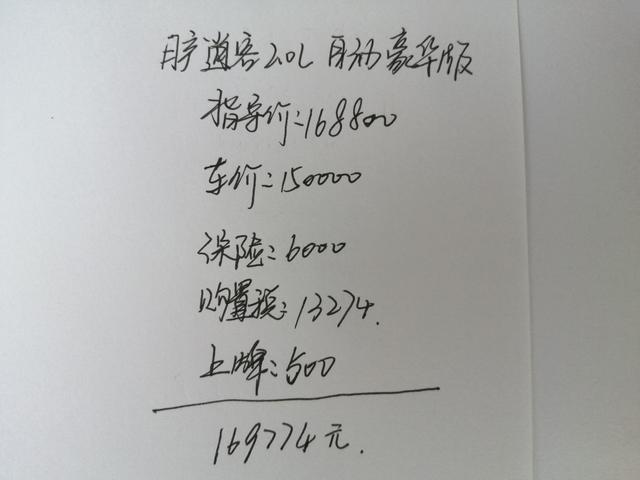 日产逍客2.0L 自动豪华版
指导价:168800
车价:150000
保险:6000
购置税:13274.
上牌:500
169774元.